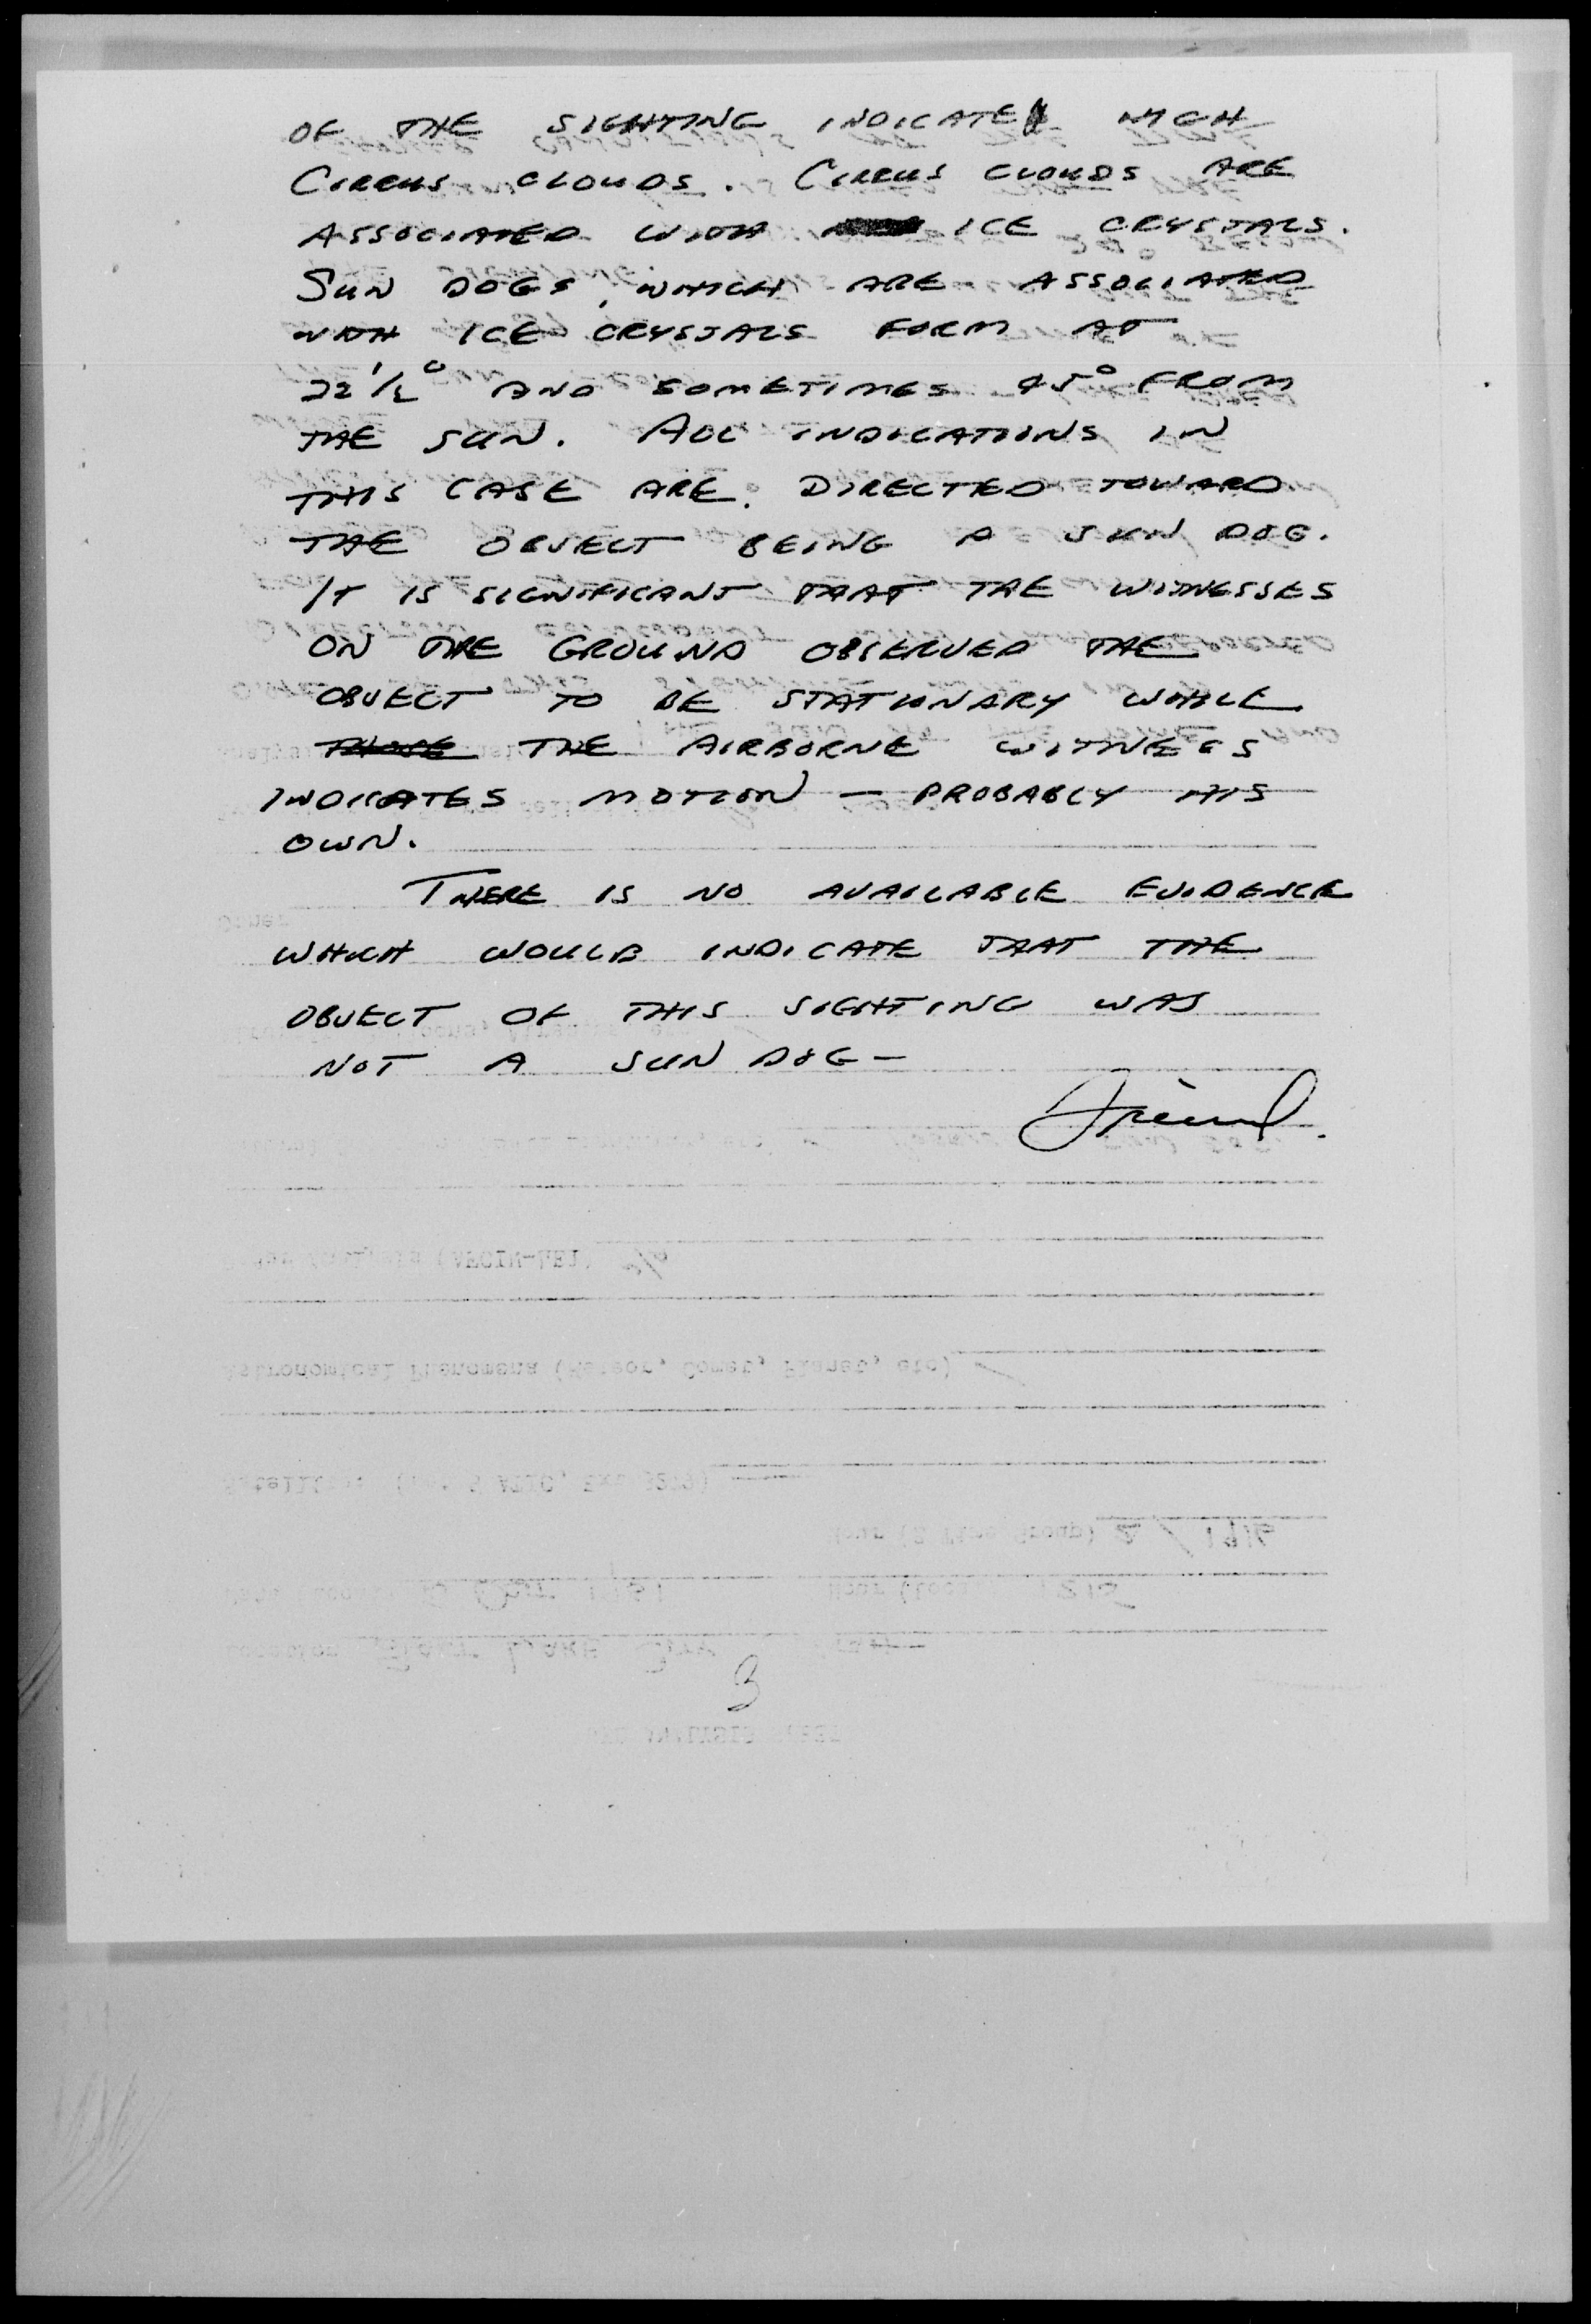 OF THE SIGHTING INDICATE HIGH
CIRRUS CLOUDS. CIRRUS CLOUDS ARE
ASSOCIATED WITH ICE CRYSTALS.
SUN DOGS, WHICH ARE ASSOCIATED
WITH ICE CRYSTALS FORM AT
22 1/2° AND SOMETIMES 45° FROM
THE SUN. ALL INDICATIONS IN
THIS CASE ARE DIRECTED TOWARD
THE OBJECT BEING A SUN DOG.
IT IS SIGNIFICANT THAT THE WITNESSES
ON THE GROUND OBSERVED THE
OBJECT TO BE STATIONARY WHILE
THE AIRBORNE WITNESS
INDICATES MOTION — PROBABLY HIS
OWN.
THERE IS NO AVAILABLE EVIDENCE
WHICH WOULD INDICATE THAT THE
OBJECT OF THIS SIGHTING WAS
NOT A SUN DOG —
Friend.